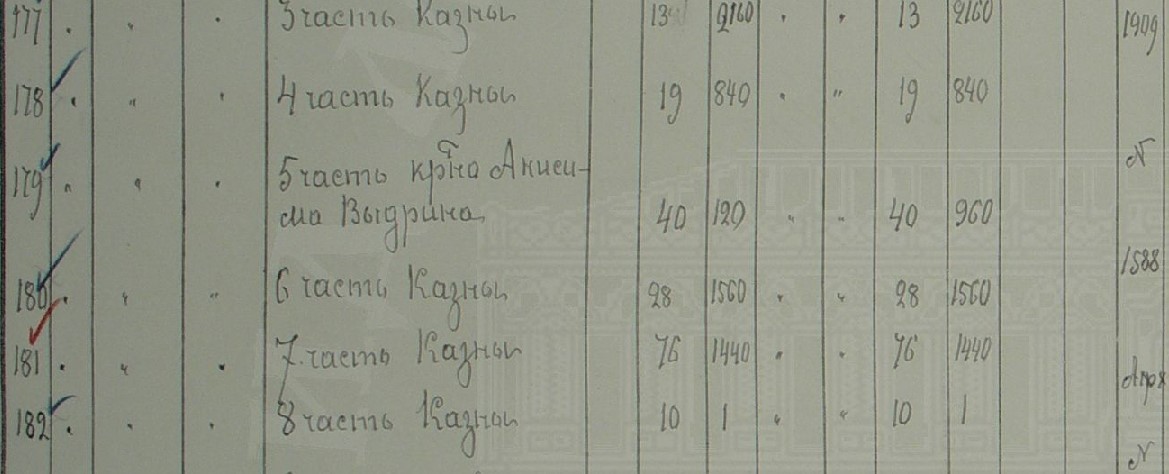 177 . " . 3 часть Казны 13 2160 " " 13 2160 1909
178 . " . 4 часть Казны 19 840 " " 19 840
179 " " . 5 часть крнᵒ Аниси- N
ма Выдрина, 40 120 " " 40 960
180 . " " 6 часть Казны 28 1560 " " 28 1560 1588
181 . " . 7 часть Казны 76 1440 " " 76 1440 Апрх
182 . . . 8 часть Казны 10 1 " " 10 1
N